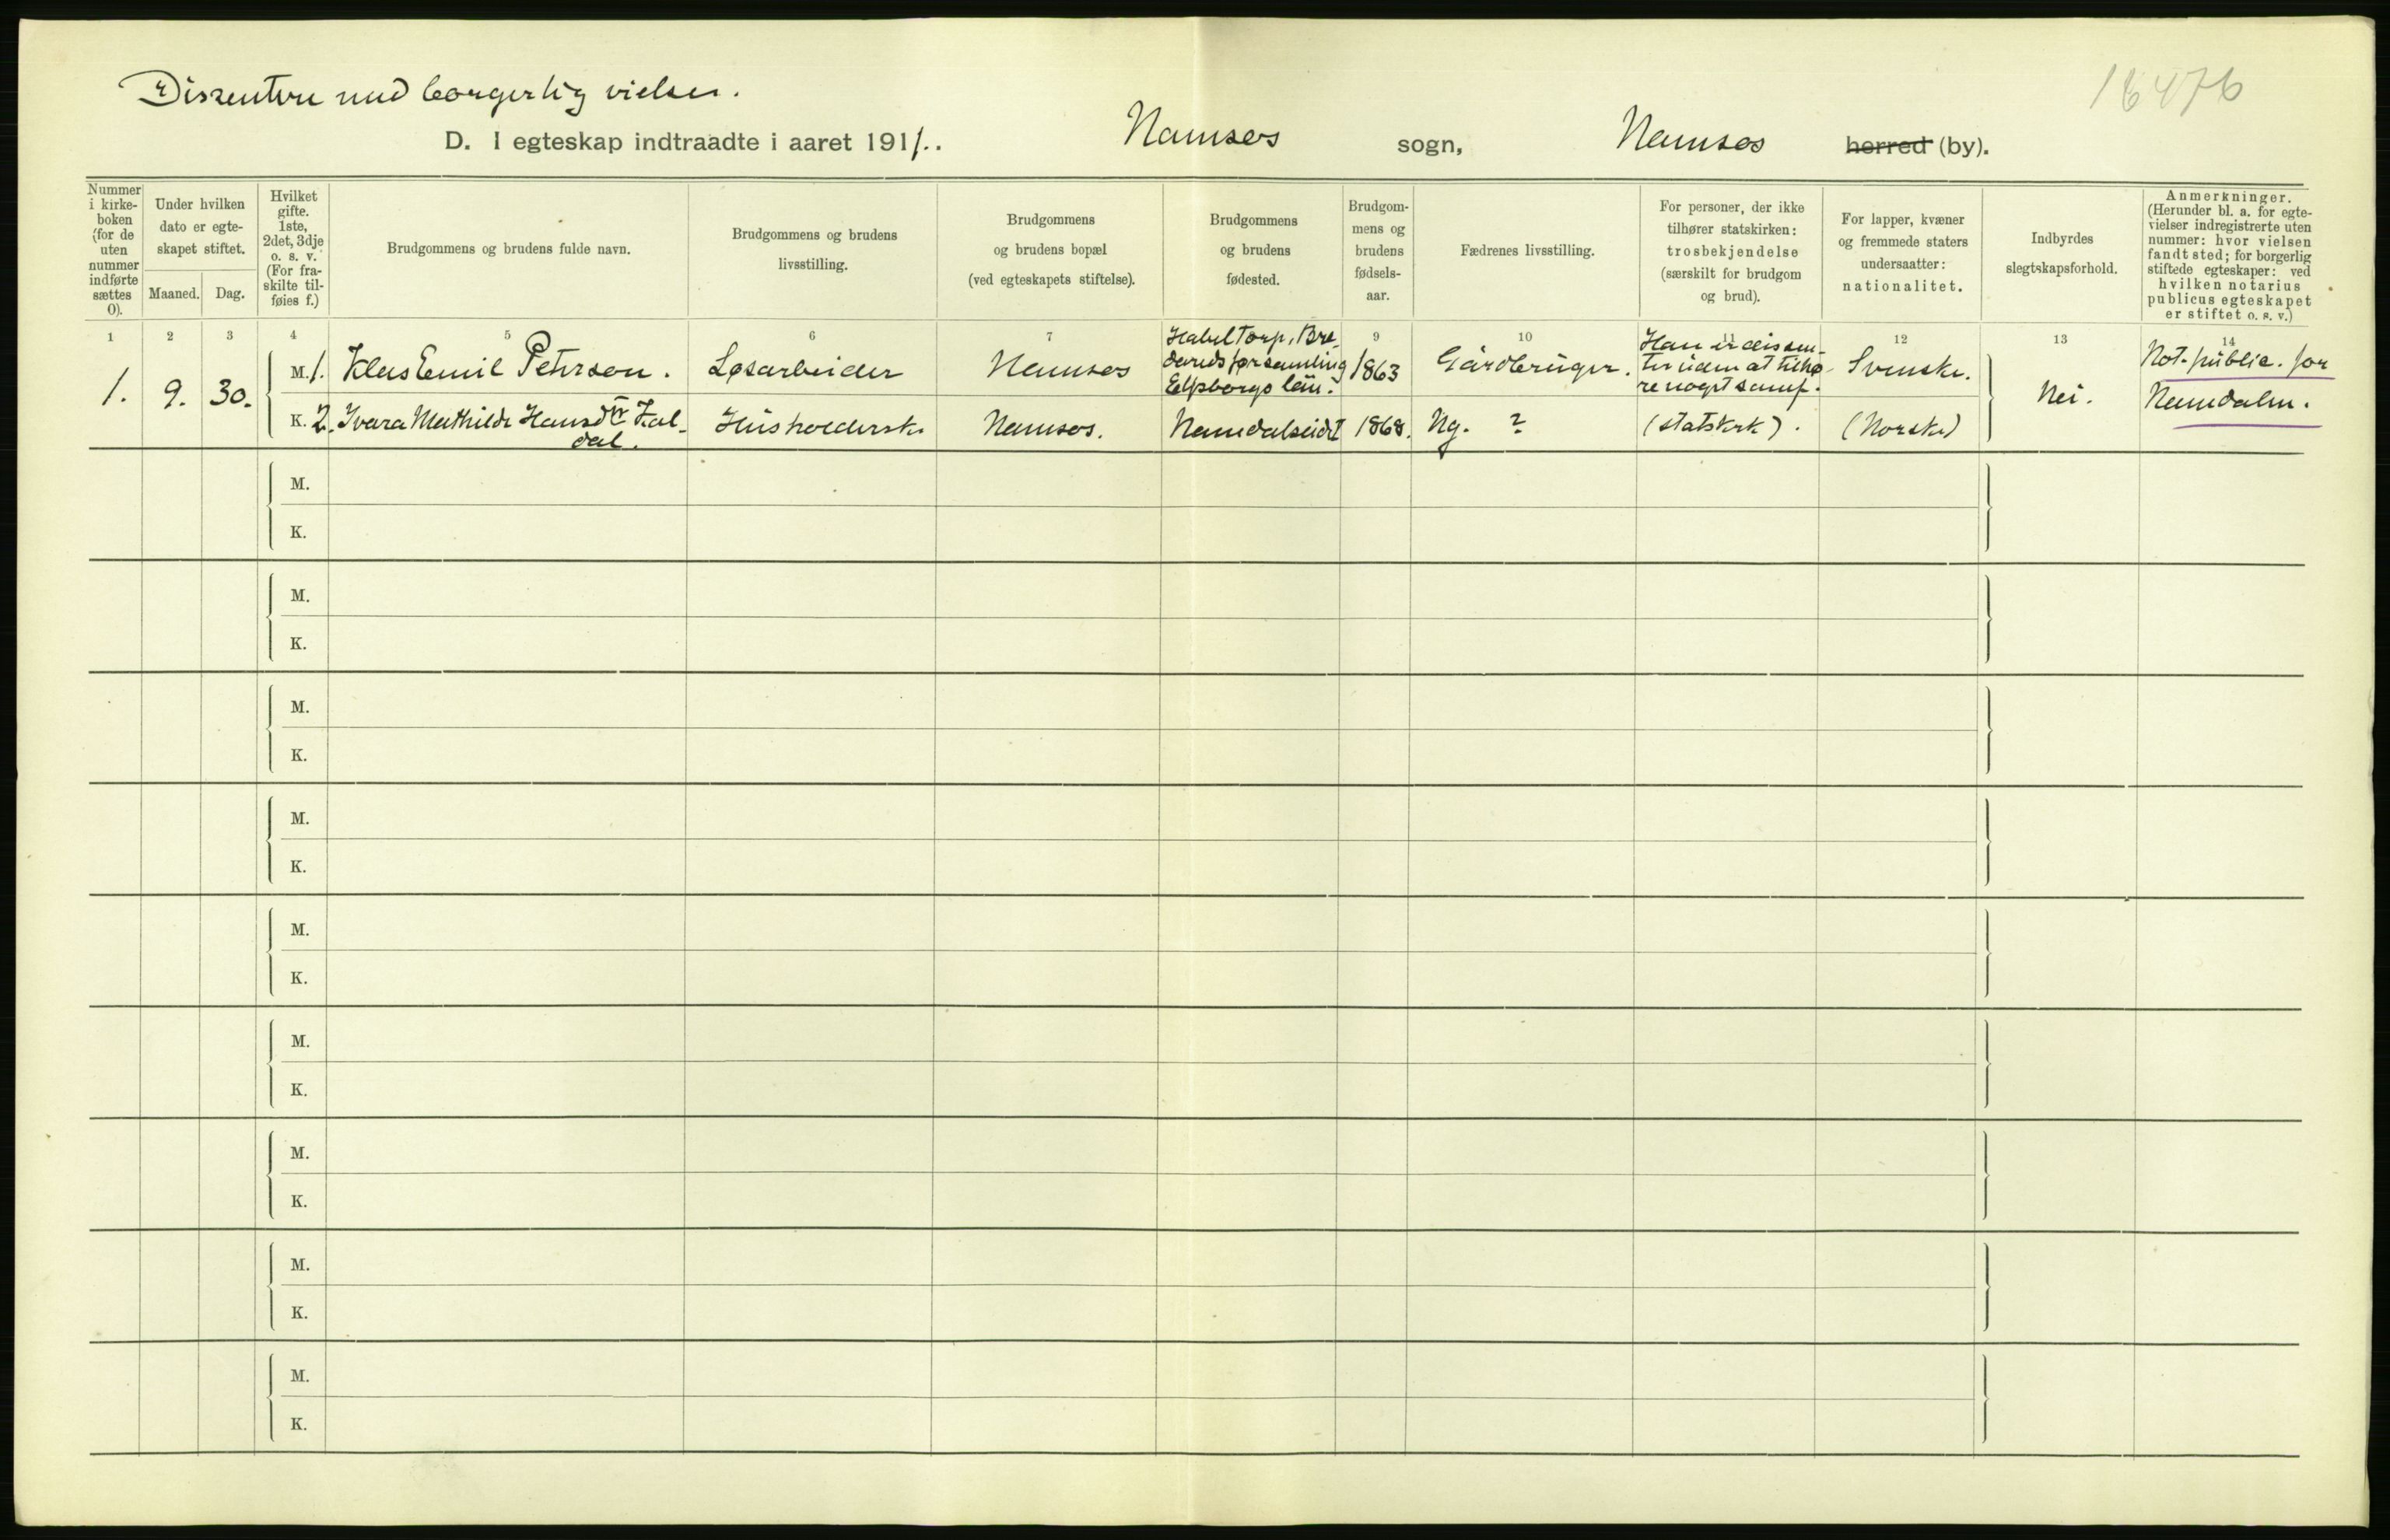 Dissentere med borgerlig vielse.
16476
D. I egteskap indtraadte i aaret 1911. Namsos sogn, Namsos herred (by).
Nummer i kirke-boken (for de uten nummer indførte sættes 0).
Under hvilken dato er egte-skapet stiftet.
Maaned. Dag.
Hvilket gifte. 1ste, 2det, 3dje o. s. v. (For fra-skilte til-føies f.)
Brudgommens og brudens fulde navn.
Brudgommens og brudens livsstilling.
Brudgommens og brudens bopæl (ved egteskapets stiftelse).
Brudgommens og brudens fødested.
Brudgom-mens og brudens fødsels-aar.
Fædrenes livsstilling.
For personer, der ikke tilhører statskirken: trosbekjendelse (særskilt for brudgom og brud).
For lapper, kvæner og fremmede staters undersaatter: nationalitet.
Indbyrdes slegtskapsforhold.
Anmerkninger. (Herunder bl. a. for egte-vielser indregistrerte uten nummer: hvor vielsen fandt sted; for borgerlig stiftede egteskaper: ved hvilken notarius publicus egteskapet er stiftet o. s. v.)
1 2 3 4 5 6 7 9 10 11 12 13 14
1. 9. 30.
M. 1. Klas Emil Peterson. Løsarbeider Namsos Habeltorp, Bre-dareds forsamling Elfsborgs län. 1863 Gårdbruger. Han er dissen-ter uden at tilhø-re noget samf. Svenske.
K. 2. Ivara Mathilde Hansdtr Kal-dal. Husholderske Namsos. Namdalseidet 1868. Ng. ? (statskrk). (Norske)
Nei.
Not. public. for Namdalen.
M.
K.
M.
K.
M.
K.
M.
K.
M.
K.
M.
K.
M.
K.
M.
K.
M.
K.